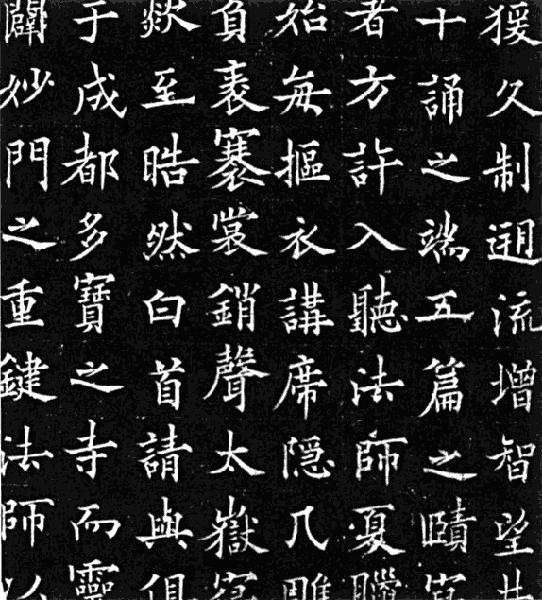 猨久制遡流增智望井
十誦之端五篇之賾寔
者方許入聽法師夏臘
始每摳衣講席隐几雕
負袠褰裳銷聲太嶽寔
欻至晧然白首請與俱
于成都多寶之寺而靈
闢妙門之重鍵法師以